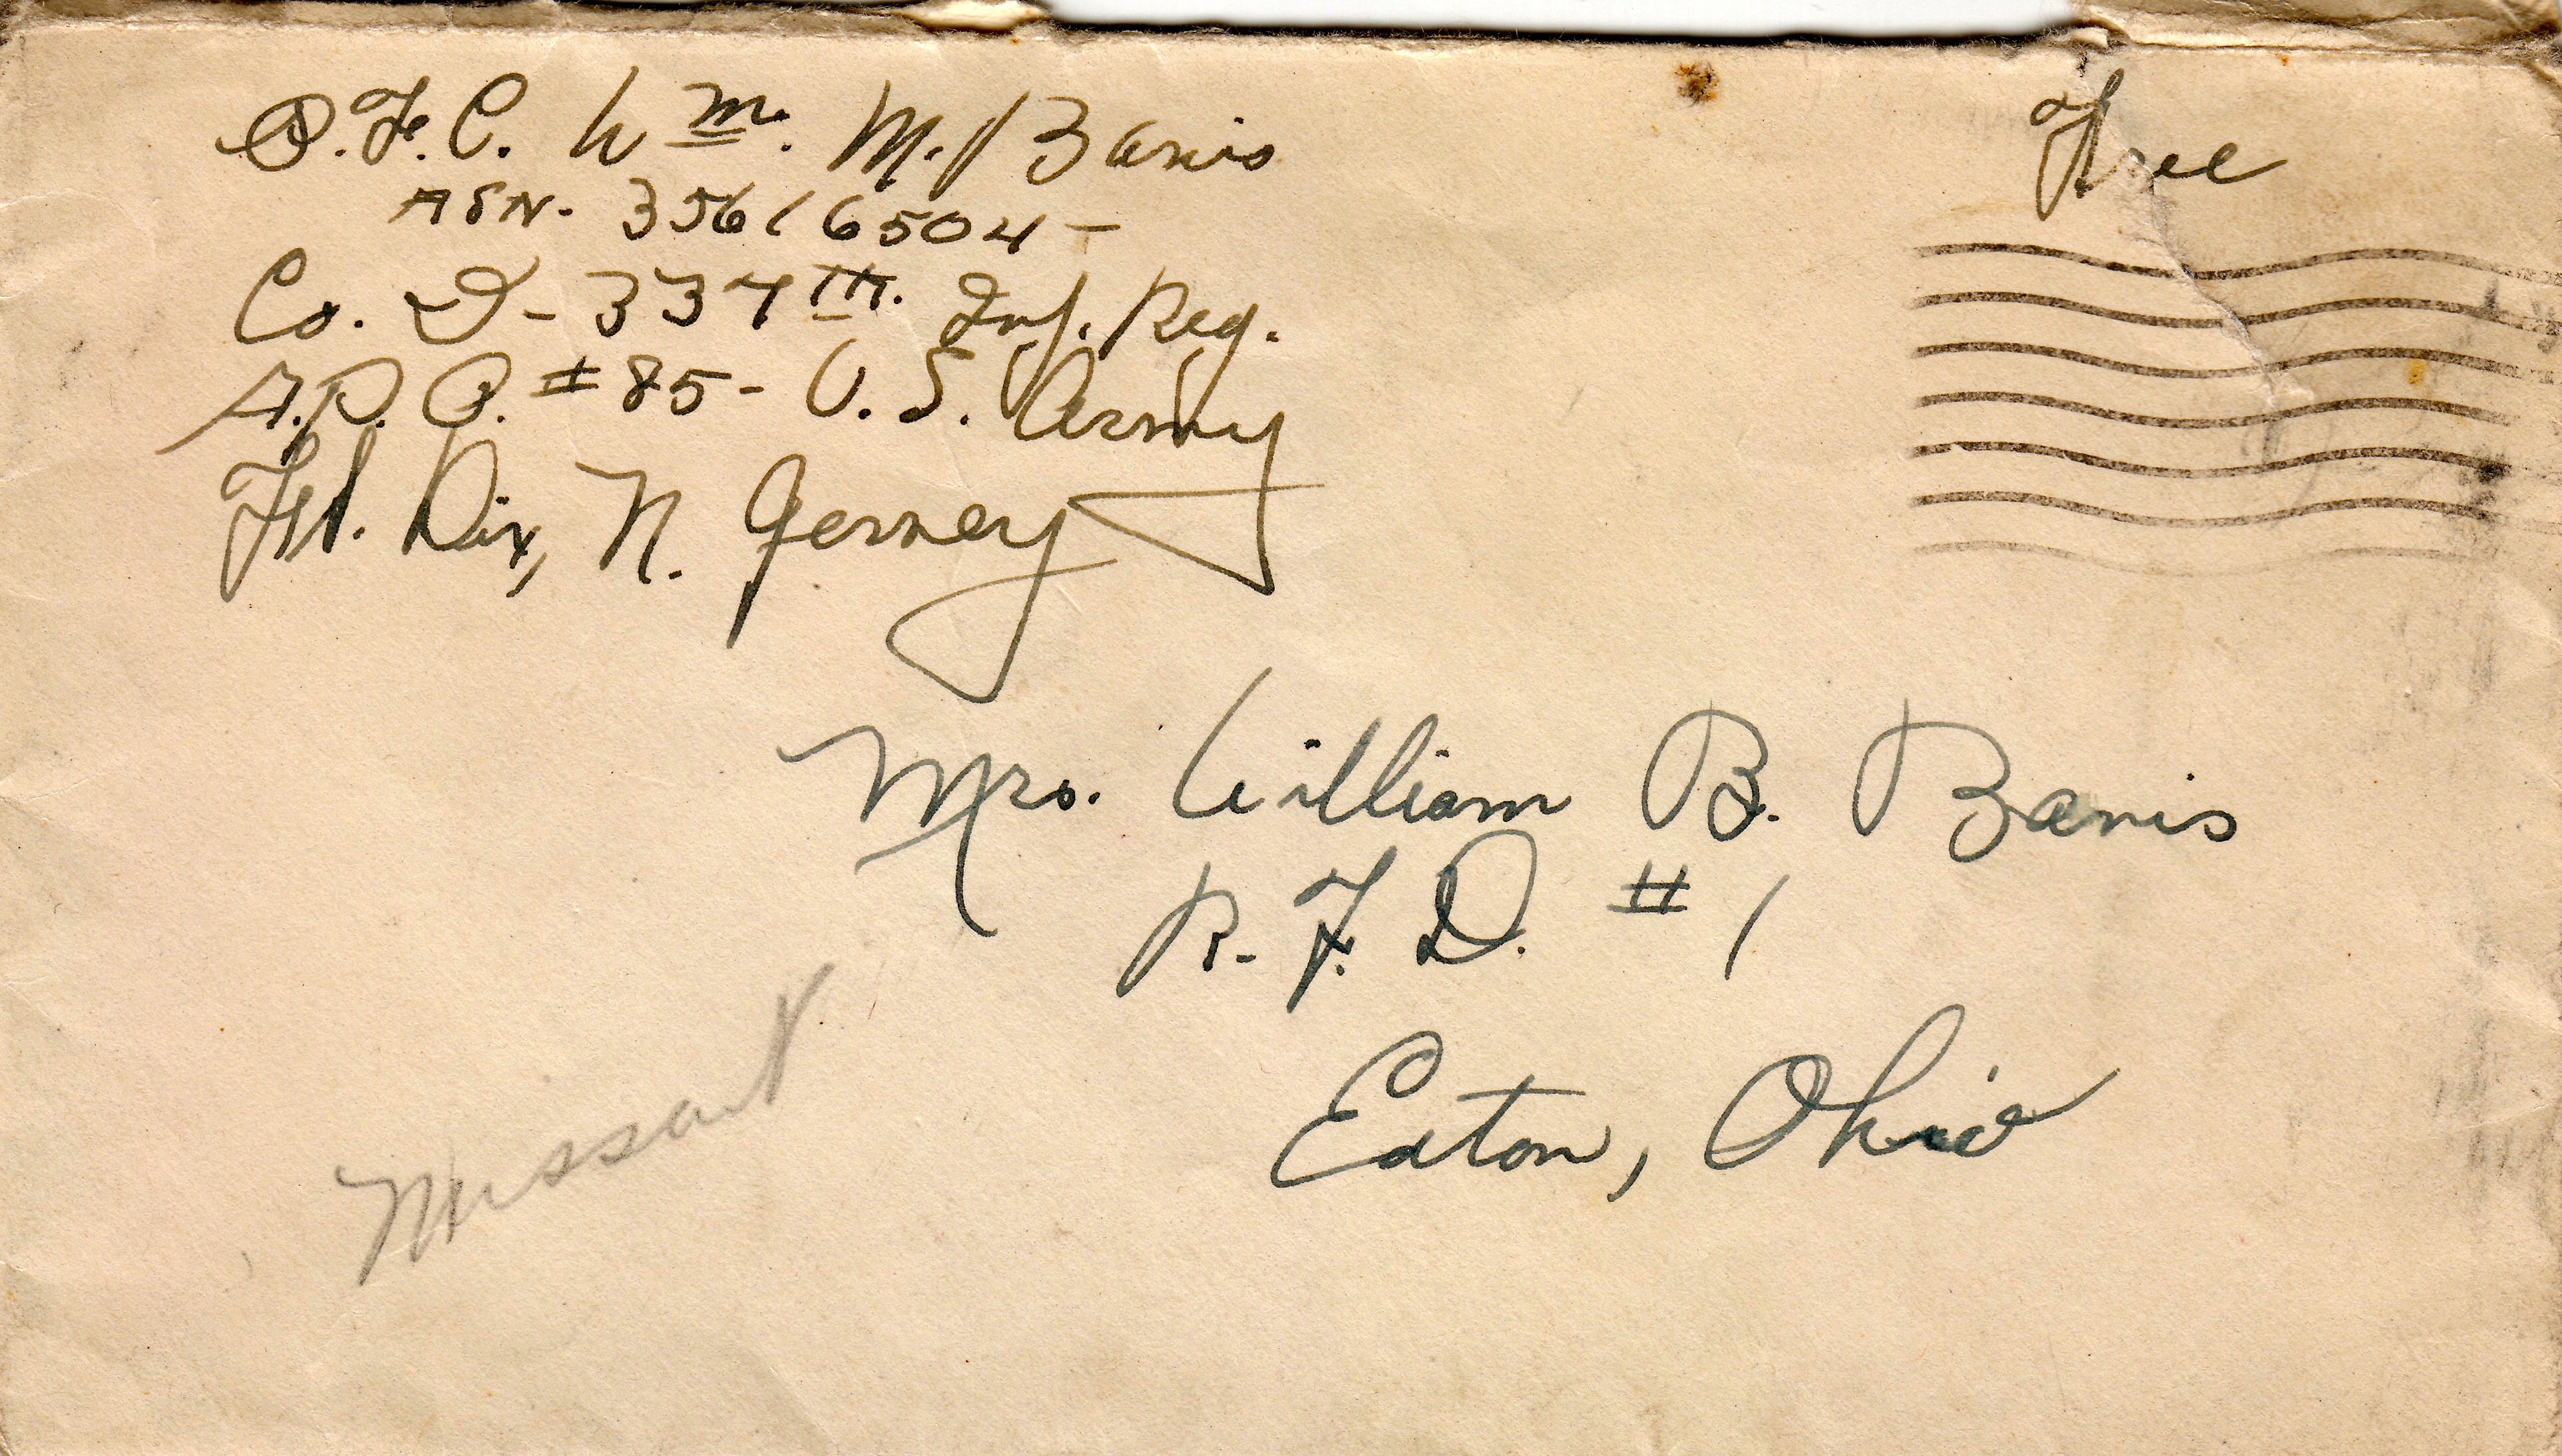 P.F.C. Wm. M. Banis
ASN- 35616504-
Co. D- 337TH. Inf. Reg.
A.P.O. #85- U.S. Army
Ft. Dix, N. Jersey
Free
Mrs. William B. Banis
R.F.D. #1
Eaton, Ohio
Missant